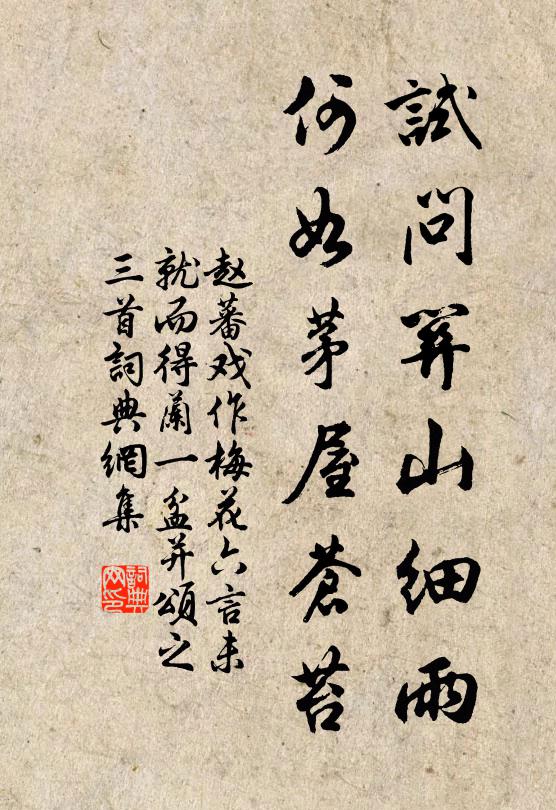 試問關山細雨
何如茅屋蒼苔
赵蕃戏作梅花六言未
就而得蘭一盆并頌之
三首詞典網集
詞典
网印